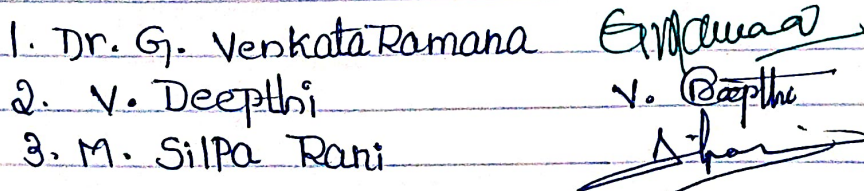 1. Dr. G. Venkata Ramana
2. V. Deepthi V. Deepthi
3. M. Silpa Rani